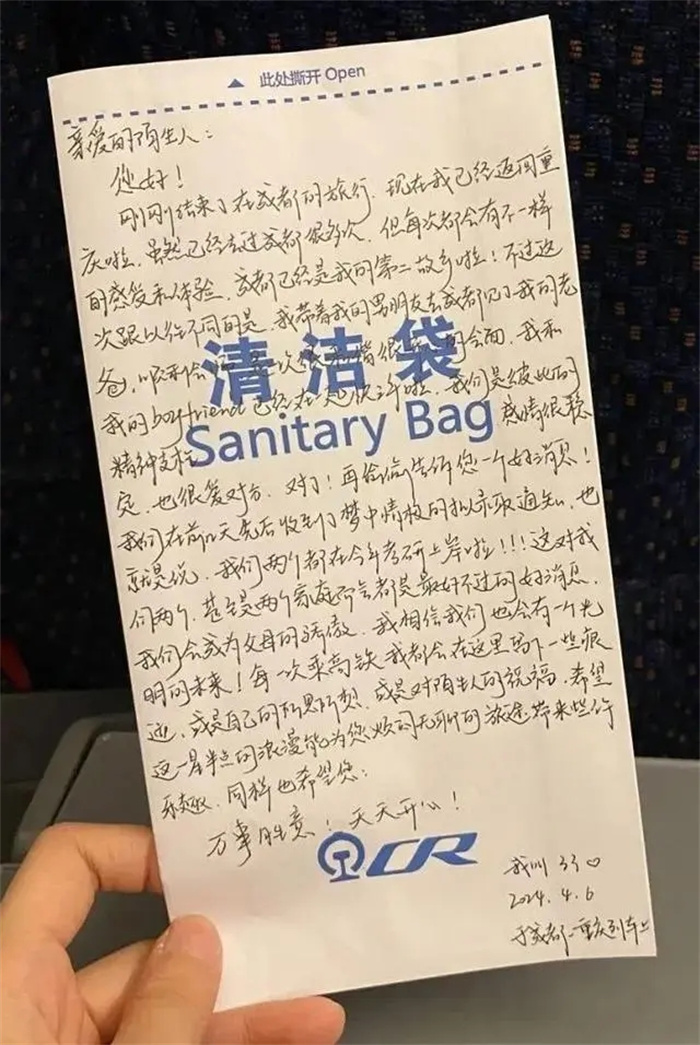 此处撕开 Open
亲爱的陌生人:
您好!
刚刚结束了在成都的旅行,现在我已经返回重
庆啦,虽然已经去过成都很多次,但每次都会有不一样
的感受和体验,成都已经是我的第二故乡啦!不过这
次跟以往不同的是,我带着我的男朋友去成都见了我的老
爸,顺利会 次很 情很 的会面,我和
清洁袋
我的boyfriend已经在一起很久啦,我们是彼此的
Sanitary Bag
精神支柱 感情很稳
定,也很爱对方,对了!再给信告诉您一个好消息!
我们在前几天先后收到了梦中情校的拟录取通知,也
就是说,我们两个都在今年考研上岸啦!!!这对我
们两个,甚至是两个家庭而言都是最好不过的好消息,
我们会成为父母的骄傲,我相信我们也会有一个光
明的未来!每一次乘高铁我都会在这里留下一些痕
迹,或是自己的所思所想,或是对陌生人的祝福,希望
这一星半点的浪漫能为您烦闷无聊的旅途带来些许
乐趣,同样也希望您:
万事胜意!天天开心!
CR
我叫 33♡
2024.4.6
于成都-重庆列车上